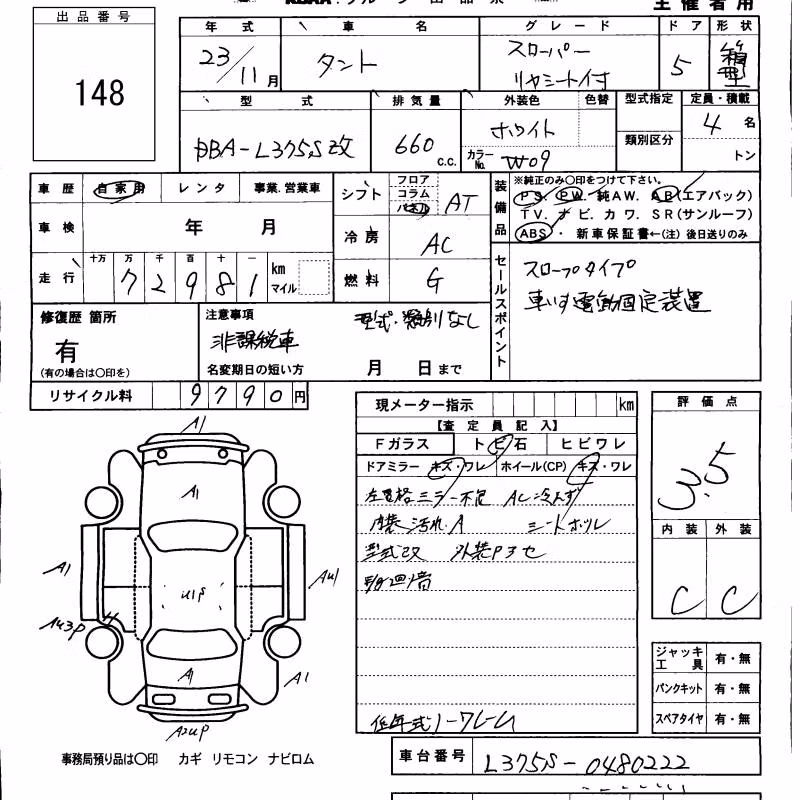 主催者用
出品番号
148
年式 車名 グレード ドア 形状
23/11月 タント スローパー リヤシート付 5 箱型
型式 排気量 外装色 色替 型式指定 定員・積載
DBA-L375S改 660 c.c. ホワイト カラーNo. W09 類別区分 4名 トン
車歴 自家用 レンタ 事業.営業車
シフト フロア コラム パネル AT
装備品 ※純正のみ〇印をつけて下さい。
PS. PW. 純AW. AB(エアバック)
TV. ナビ. カワ. SR(サンルーフ)
ABS・ 新車保証書←(注)後日送りのみ
車検 年 月
冷房 AC
走行 十万 万 千 百 十 一 72981 km マイル
燃料 G
セールスポイント
スロープタイプ
車いす電動固定装置
修復歴 箇所 有 (有の場合は〇印を)
注意事項 型式・類別なし
非課税車
名変期日の短い方 月 日まで
リサイクル料 9790円
現メーター指示 km
【査定員記入】
Fガラス トビ石 ヒビワレ
ドアミラー キズ・ワレ ホイール(CP) キズ・ワレ
ミラー不良 AC冷えず
内装汚れ.A シートホツレ
型式改
評価点
3.5
内装 外装
C C
A1
A1
A1
AU1
U1P
AU3P
A1
A1
A2UP
ジャッキ工具 有・無
パンクキット 有・無
スペアタイヤ 有・無
事務局預り品は〇印 カギ リモコン ナビロム
車台番号 L375S-0480222